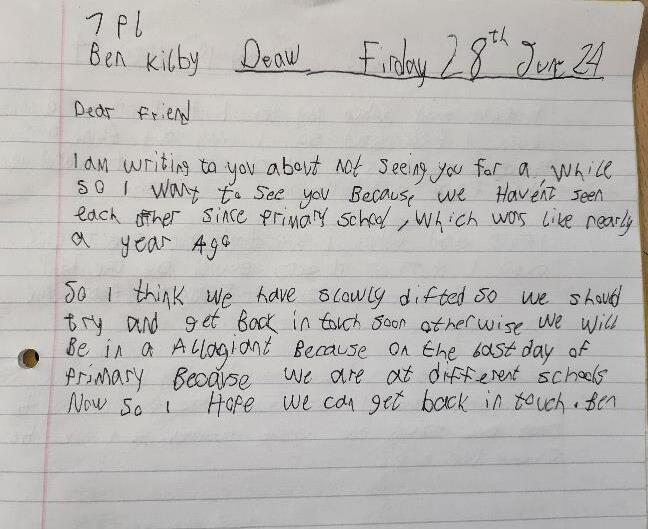 7 PL
Ben Kilby Deaw Firday 28th June 24
Dear Friend
I am writing to you about not seeing you for a while
so I want to see you Because we Haven't seen
each other since primary school, which was like nearly
a year Ago
So I think we have slowly difted so we should
try and get Back in touch soon otherwise we will
Be in a Allagiant Because on the last day of
primary Because we are at different schools
Now So I Hope we can get back in touch. Ben